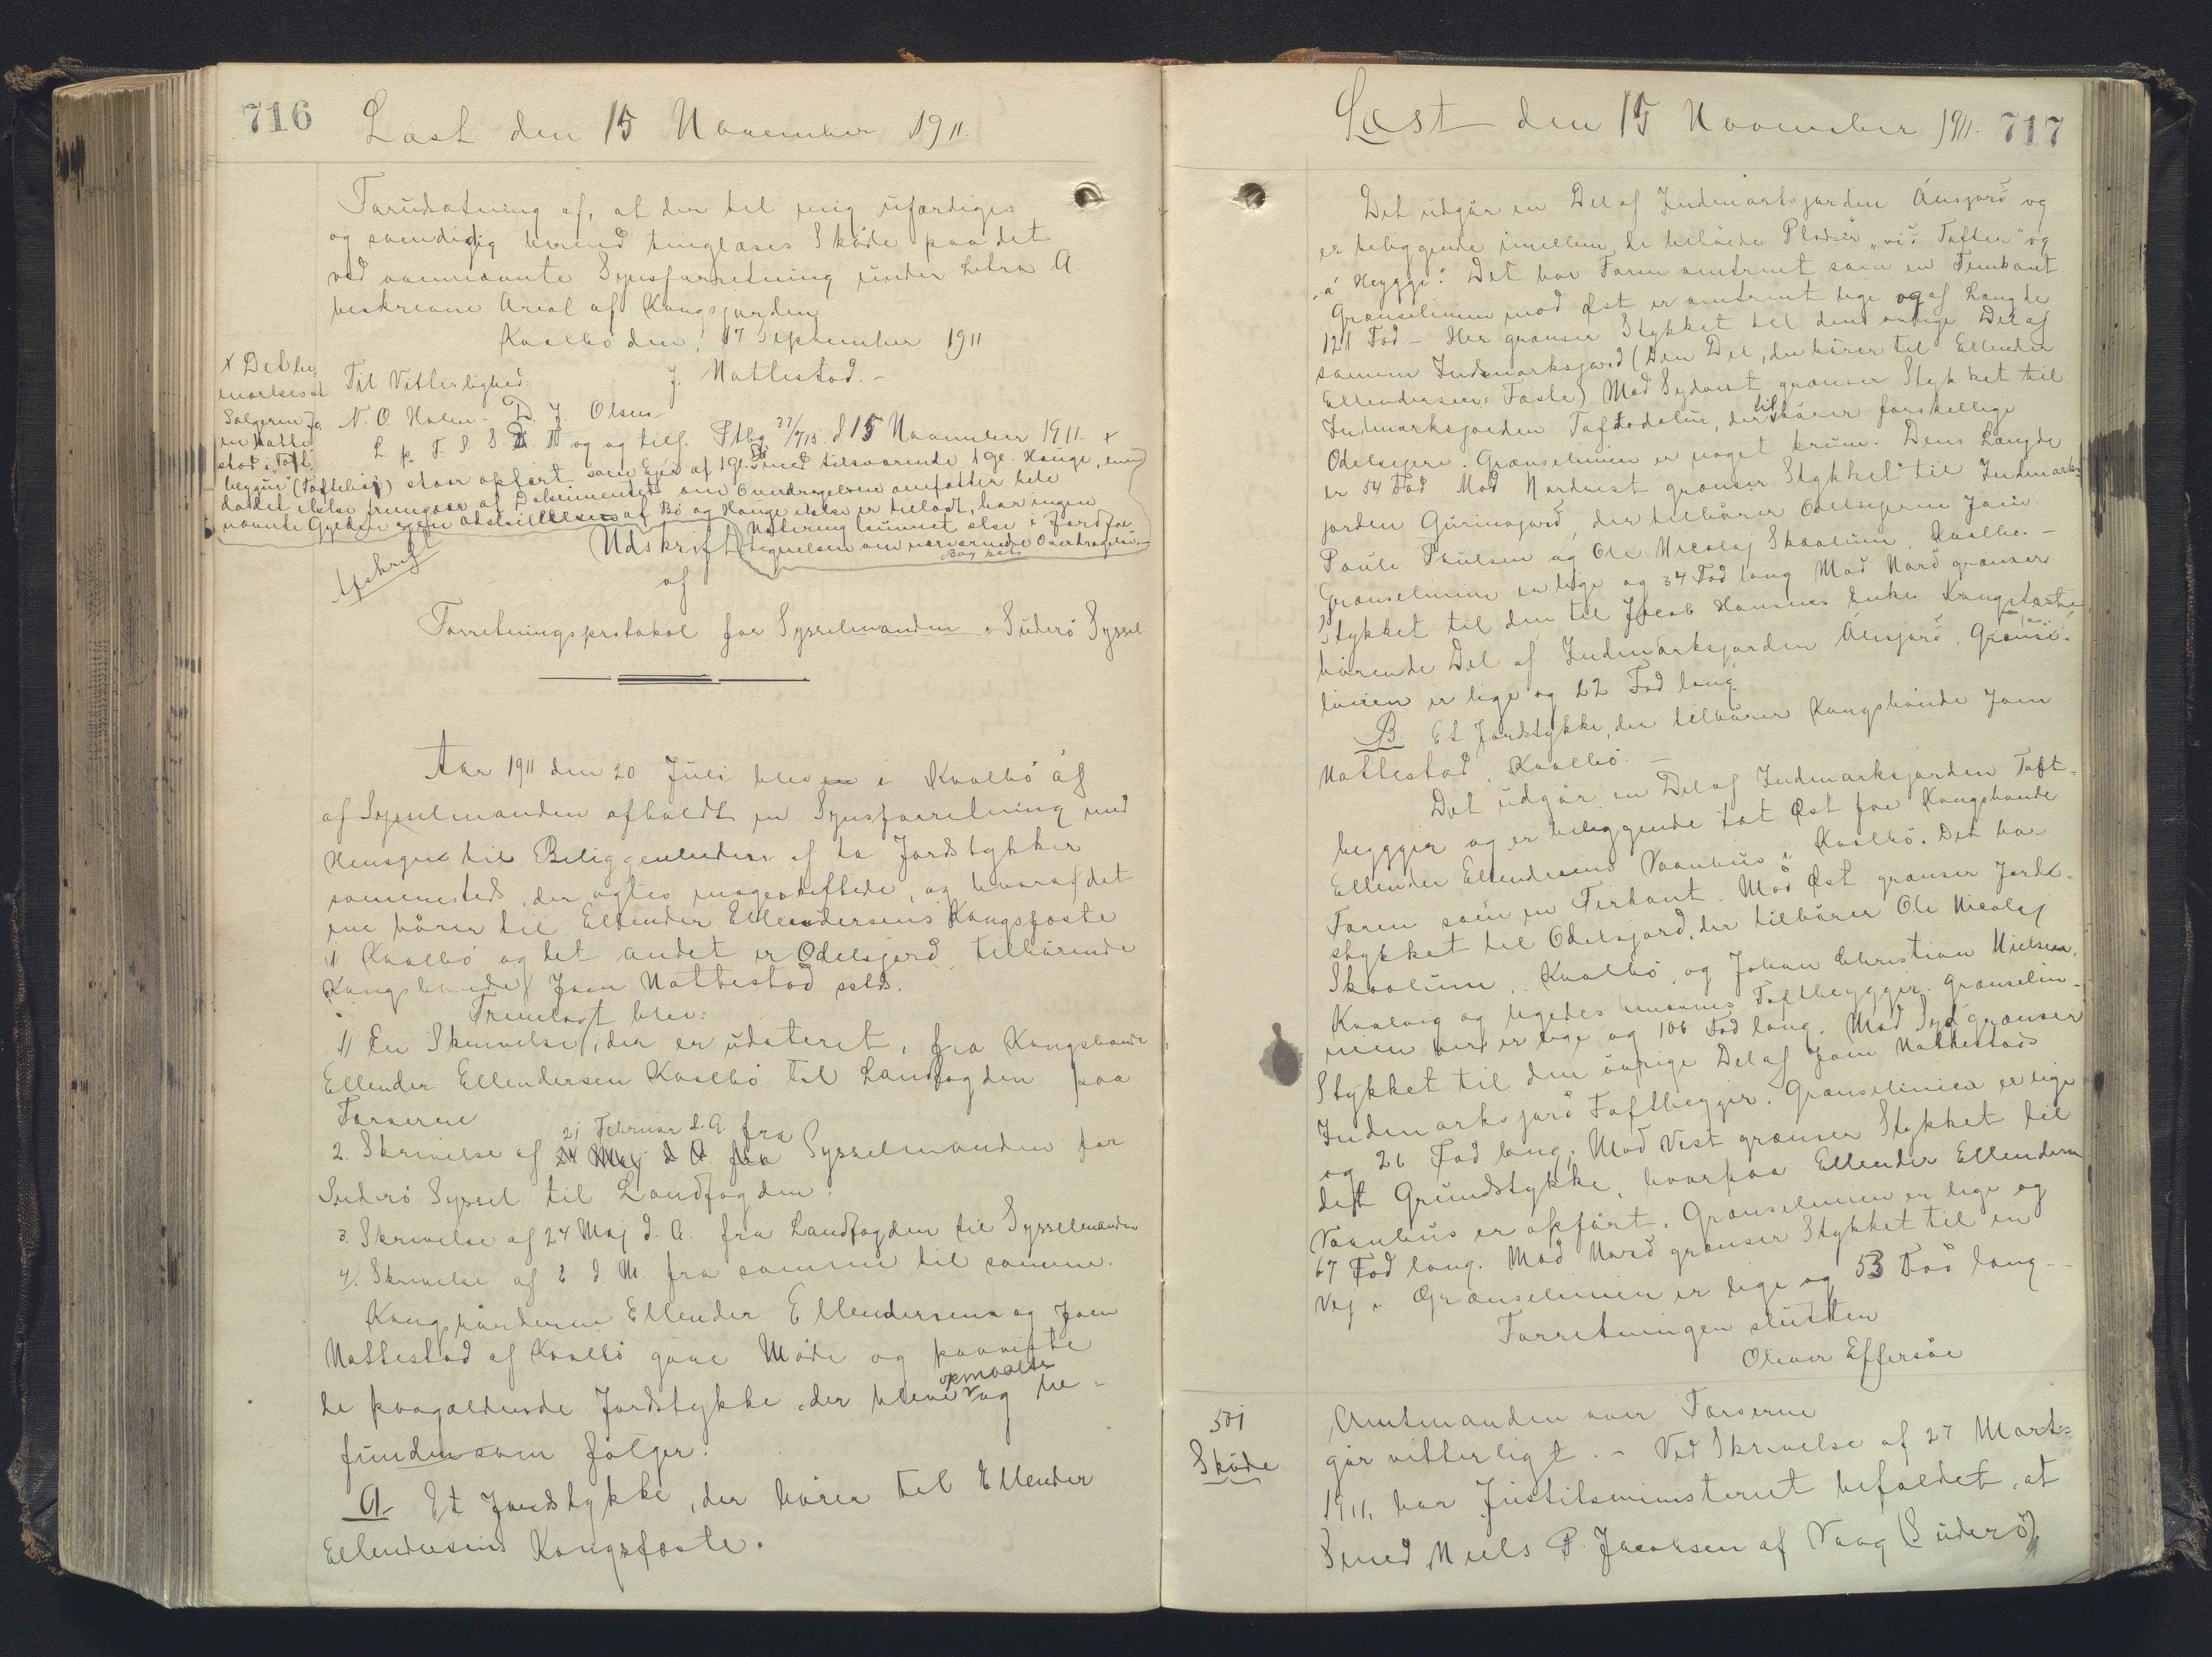 716
Læst den 15 November 1911.
Forudsætning af, at der til mig ufærdiges
og samdigdig hermed tinglæses Skøde paa det
ved ovennævnte Synsforretning under Litra A
beskrevne Areal af Kongsjorden
Kvalbø den 17 September 1911
J. Nattestad.-
Til Vitterlighed.
N. O. Holm - D. J. Olsen
L. p. F. S. S. R. og og tilf. Ptbg. d 15 November 1911. x
x Det be-
mærkes at
Sælgeren Jo
en Natte
stad i "Toft
heyggum" (Toftebø) staar opført som Ejer af 1 Gl. med tilsvarende 1 Gl. Hauge, men
da det ikke fremgaar af Dokumentet om Overdragelsen omfatter hele
nævnte Gylden og en Adskillelse af Bø og Hauge ikke er tilladt, har ingen
Notering kunnet ske i Jordfor-
tegnelsen om nærværende Overdragelse.-
Afskrift
Udskrift
af
Forretningsprotokol for Sysselmanden i Suderø Syssel
Aar 1911 den 20 Juli blev en i Kvalbø af
af Sysselmanden afholdt en Synsforretning med
Hensyn til Beliggenheden af to Jordstykker
sammesteds, der agtes mageskiftede, og hvoraf det
ene hører til Ellender Ellendersens Kongsfæste
i Kvalbø og det andet er Odelsjord tilhørende
Kongsbonde Joen Nattestad sstds.
Fremlagt blev:
1/ En Skrivelse, der er udateret, fra Kongsbonde
Ellender Ellendersen Kvalbø til Landfogden paa
Færøerne
21 Februar d. A. fra
2. Skrivelse af 24 Maj d A fra Sysselmanden for
Suderø Syssel til Landfogden.
3. Skrivelse af 24 Maj d. A. fra Landfogden til Sysselmanden
4/. Skrivelse af 8 d. M. fra samme til samme.
Kongsbønderne Ellender Ellendersen og Joen
Nattestad af Kvalbø gave Møde og paaviste
de paagældende Jordstykke, der bleve opmaalte og be-
funden som følger.
A. Et Jordstykke, der hører til Ellender
Ellendersens Kongsfæste.
Læst den 15 November 1911. 717
Det udgår en Del af Indmarksjorden Ánsjørð og
er beliggende imellem de beboede Pladser "við Toftir" og
"á Heyggi". Det har Form omtrent som en Femkant
Grænselinien mod Øst er omtrent lige og af Længde
121 Fod - Her grænser Stykket til den øvrige Del af
samme Indmarksjord (Den Del, der hører til Ellender
Ellendersens Fæste) Mod Sydvest grænser Stykket til
Indmarksjorden Toftodalin, der tilhører forskellige
Odelsejere. Grænselinien er noget krum. Dens Længde
er 54 Fod. Mod Nordvest grænser Stykket til Indmarks-
jorden Gurinajørð, der tilhører Odelsejerne Joen
Poule Poulsen og Ole Nicolaj Skaalum, Kvalbø. -
Grænselinien er lige og 34 Fod lang Mod Nord grænser
Stykket til den til Jacob Hansens Enkes Kongsfæste
hørende Del af Indmarksjorden Ánsjørð. Grænse-
linien er lige og 22 Fod lang
B. Et Jordstykke, der tilhører Kongsbonde Joen
Nattestad, Kvalbø. -
Det udgår en Del af Indmarksjorden Toft-
heyggir og er beliggende tæt Øst for Kongsbonde
Ellender Ellendersens Vaanhus i Kvalbø. Det har
Form som en Firkant. Mod Øst grænser Jord-
stykket til Odelsjord, der tilhører Ole Nicolaj
Skaalum, Kvalbø, og Johan Christian Nielsen,
Kvalvig og ligedes benævnes Toftheyggir. Grænselin-
nien her er lige og 106 Fod lang. Mod Syd grænser
Stykket til den øvrige Del af Joen Nattestads
Indmarksjord Toftheyggir. Grænselinien er lige
og 26 Fod lang. Mod Vest grænser Stykket til
det Grundstykke, hvorpaa Ellender Ellendersen
Vaanhus er opført. Grænselinien er lige og
67 Fod lang. Mod Nord grænser Stykket til en
Vej. Grænselinien er lige og 53 Fod lang -
Forretningen sluttet
Oliver Effersøe
501
Skøde
Amtmanden over Færøerne
gør vitterligt. - Ved Skrivelse af 27 Marts
1911, har Justitsministeriet befalet, at
Smed Niels P. Jacobsen af Vaag (Suderø)